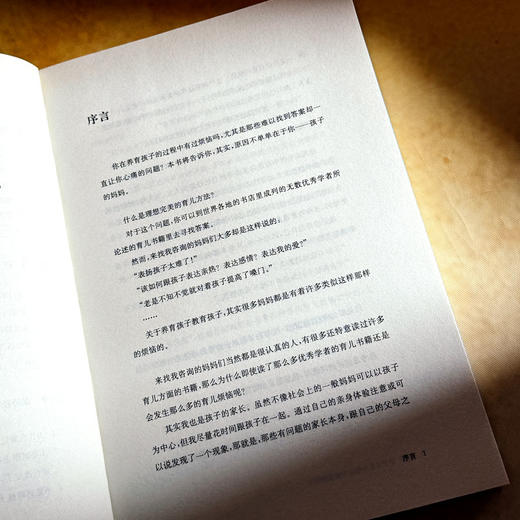 序言
你在养育孩子的过程中有过烦恼吗,尤其是那些难以找到答案却一
直让你心痛的问题?本书将告诉你,其实,原因不单单在于你——孩子
的妈妈。
什么是理想完美的育儿方法?
对于这个问题,你可以到世界各地的书店里成列的无数优秀学者所
论述的育儿书籍里去寻找答案。
然而,来找我咨询的妈妈们大多却是这样说的:
“表扬孩子太难了!”
“该如何跟孩子表达亲热?表达感情?表达我的爱?”
“老是不知不觉就对着孩子提高了嗓门。”
……
关于养育孩子教育孩子,其实很多妈妈都是有着许多类似这样那样
的烦恼的。
来找我咨询的妈妈们当然都是很认真的人,有很多还特意读过许多
育儿方面的书籍,那么为什么即使读了那么多优秀学者的育儿书籍还是
会发生那么多的育儿烦恼呢?
其实我也是孩子的家长。虽然不像社会上的一般妈妈可以以孩子
为中心,但我尽量花时间跟孩子在一起。通过自己的亲身体验注意或可
以说发现了一个现象,那就是,那些有问题的家长本身,跟自己的父母之
序言 1